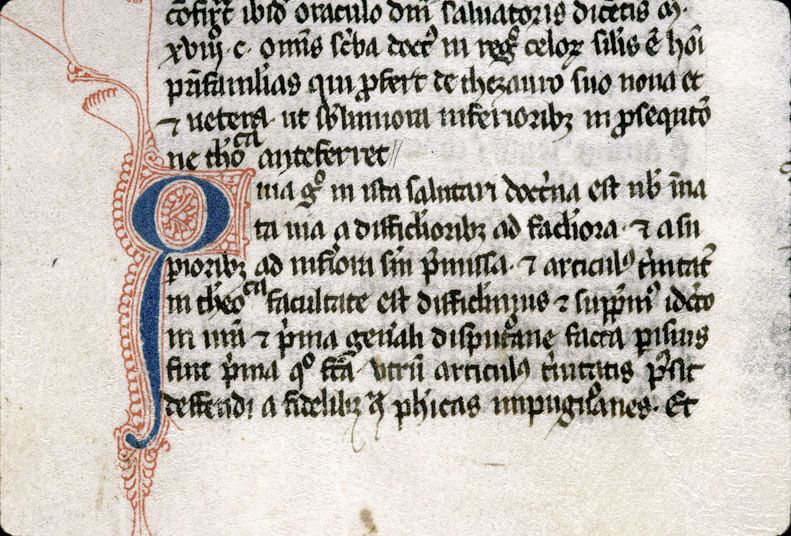 cōfirt᷑ ibid᷑ oraculo dn̄i saluatoris dicētis m̄.
xviij. c. omīs sc̄ba doct᷑ in reg᷑ celoꝝ sil̄is ē hoī
pr̄ifamilias qui ꝓfert de thezauro suo noua et
⁊ uetera. ut sb̄limiora inferioribꝫ in ꝓsequtō
ne theoᶜᵃ anteferret //
Quia gͦ in ista salutari doct͛na est nb̄ ī̄na
ta uia a difficilioribꝫ ad facil̓iora. ⁊ a su
pioribꝫ ad infiora sm̄ p̄missa. ⁊ articulꝰ t͛nitat᷑
in theoᶜᵃ facultate est difficil̓imus ⁊ supp̄mꝰ idcͦo
in mīi ⁊ p͛ma gen̓ali disputaͦne facta pisius
fuit p͛ma qͦ fc̄a vtrū articulꝰ t͛nitatis p̄sit
deffendi a fidelibꝫ ꝯ͛ ph̓icas impugnaͦnes. Et